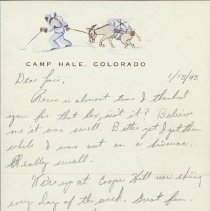 CAMP HALE, COLORADO
1/13/43
Dear Lois,
is almost time I thanked
you for that box, isn't it? Believe
me it was swell. Better yet I got them
while I was out on a bivouac.
Really swell.
We're up at Cooper Hill now skiing
every day of the week. Great fun.